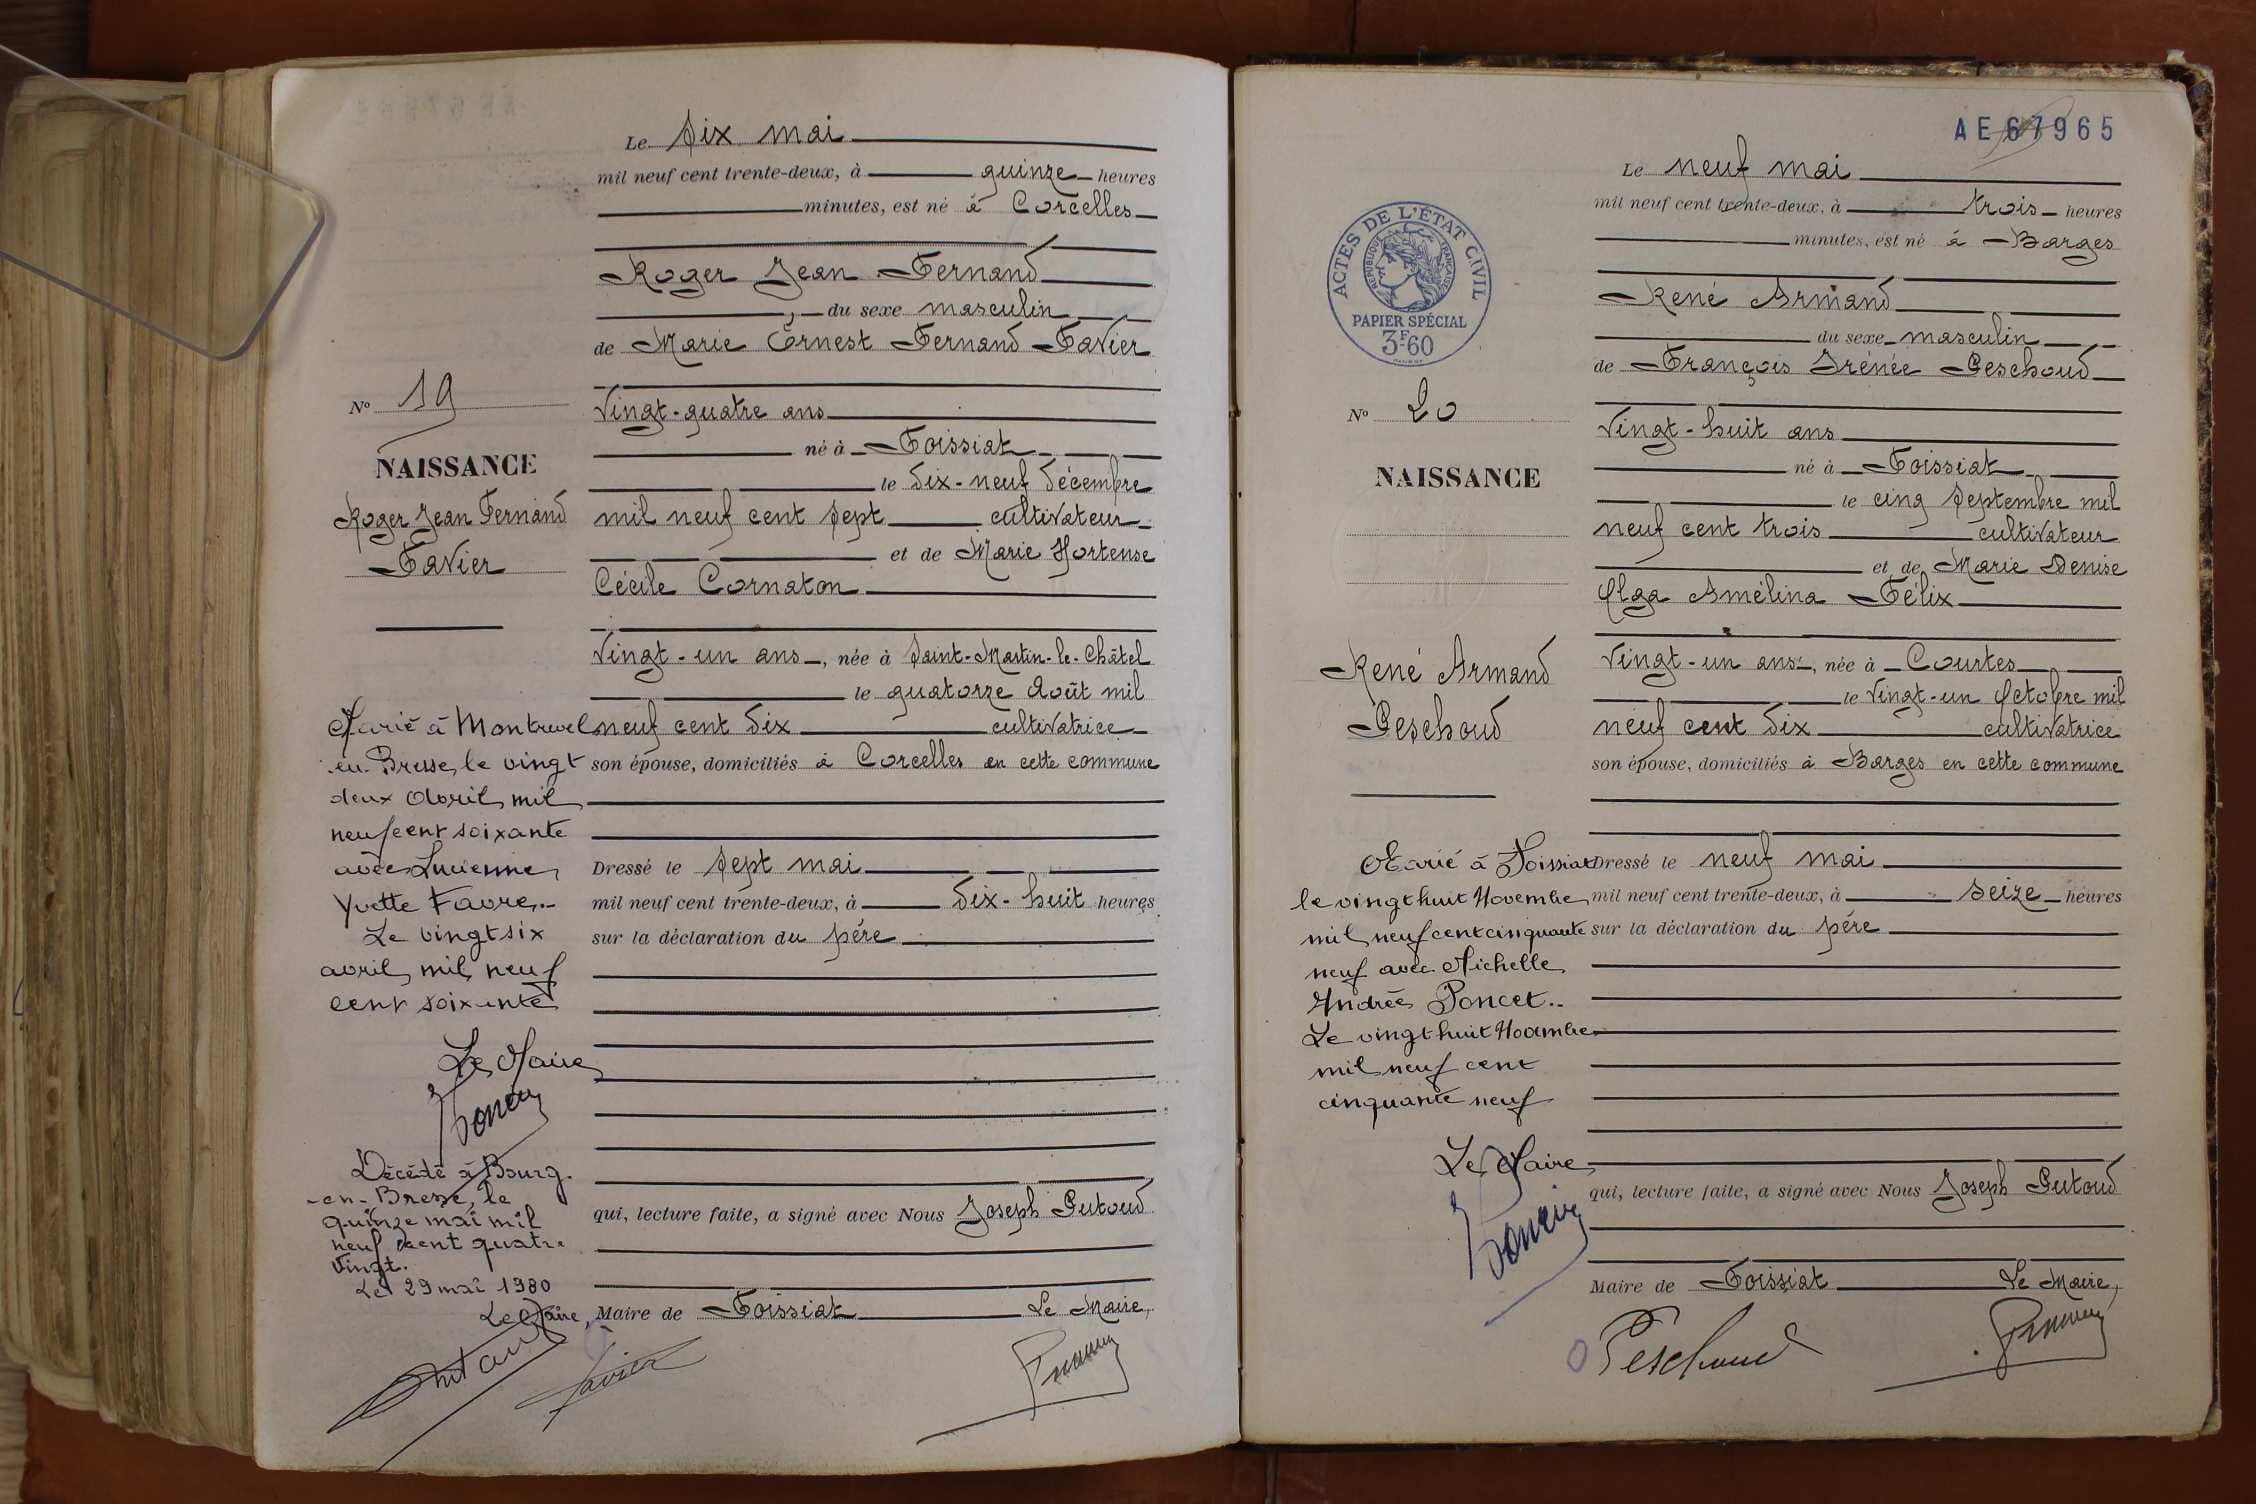 Le six mai
mil neuf cent trente-deux, à quinze heures
minutes, est né à Corcelles
Roger Jean Fernand
, du sexe masculin
de Marie Ernest Fernand Favier
N° 19
Vingt-quatre ans
né à Foissiat
NAISSANCE
le dix-neuf décembre
Roger Jean Fernand
mil neuf cent sept cultivateur
Favier
et de Marie Hortense
Cécile Cornaton
Vingt-un ans, née à Saint-Martin-le-Châtel
le quatorze Août mil
neuf cent dix cultivatrice
son épouse, domiciliés à Corcelles en cette commune
Marié à Montrevel
en-Bresse, le vingt
deux Avril mil
neuf cent soixante
avec Lucienne
Yvette Favre.-
Le vingt six
avril mil neuf
cent soixante
Le Maire
Dressé le sept mai
mil neuf cent trente-deux, à dix-huit heures
sur la déclaration du père
Décédé à Bourg-
-en-Bresse, le
quinze mai mil
neuf cent quatre
vingt.
Le 29 mai 1980
Le Maire,
qui, lecture faite, a signé avec Nous Joseph Putoud
Maire de Foissiat Le Maire,
Favier
AE67965
Le neuf mai
mil neuf cent trente-deux, à trois heures
minutes, est né à Barges
ACTES DE L'ÉTAT CIVIL
RÉPUBLIQUE FRANÇAISE
PAPIER SPÉCIAL
3F60
René Armand
du sexe masculin
de François Irénée Peschoud
N° 20
Vingt-huit ans
né à Foissiat
NAISSANCE
le cinq septembre mil
neuf cent trois cultivateur
et de Marie Denise
Olga Amélina Félix
René Armand
Peschoud
Vingt-un ans, née à Courtes
le vingt-un Octobre mil
neuf cent dix cultivatrice
son épouse, domiciliés à Barges en cette commune
Marié à Foissiat
le vingt huit Novembre
mil neuf cent cinquante
neuf avec Michelle
Andrée Poncet..
Le vingt huit Novembre
mil neuf cent
cinquante neuf
Le Maire
Dressé le neuf mai
mil neuf cent trente-deux, à seize heures
sur la déclaration du père
qui, lecture faite, a signé avec Nous Joseph Putoud
Maire de Foissiat Le Maire,
Peschoud